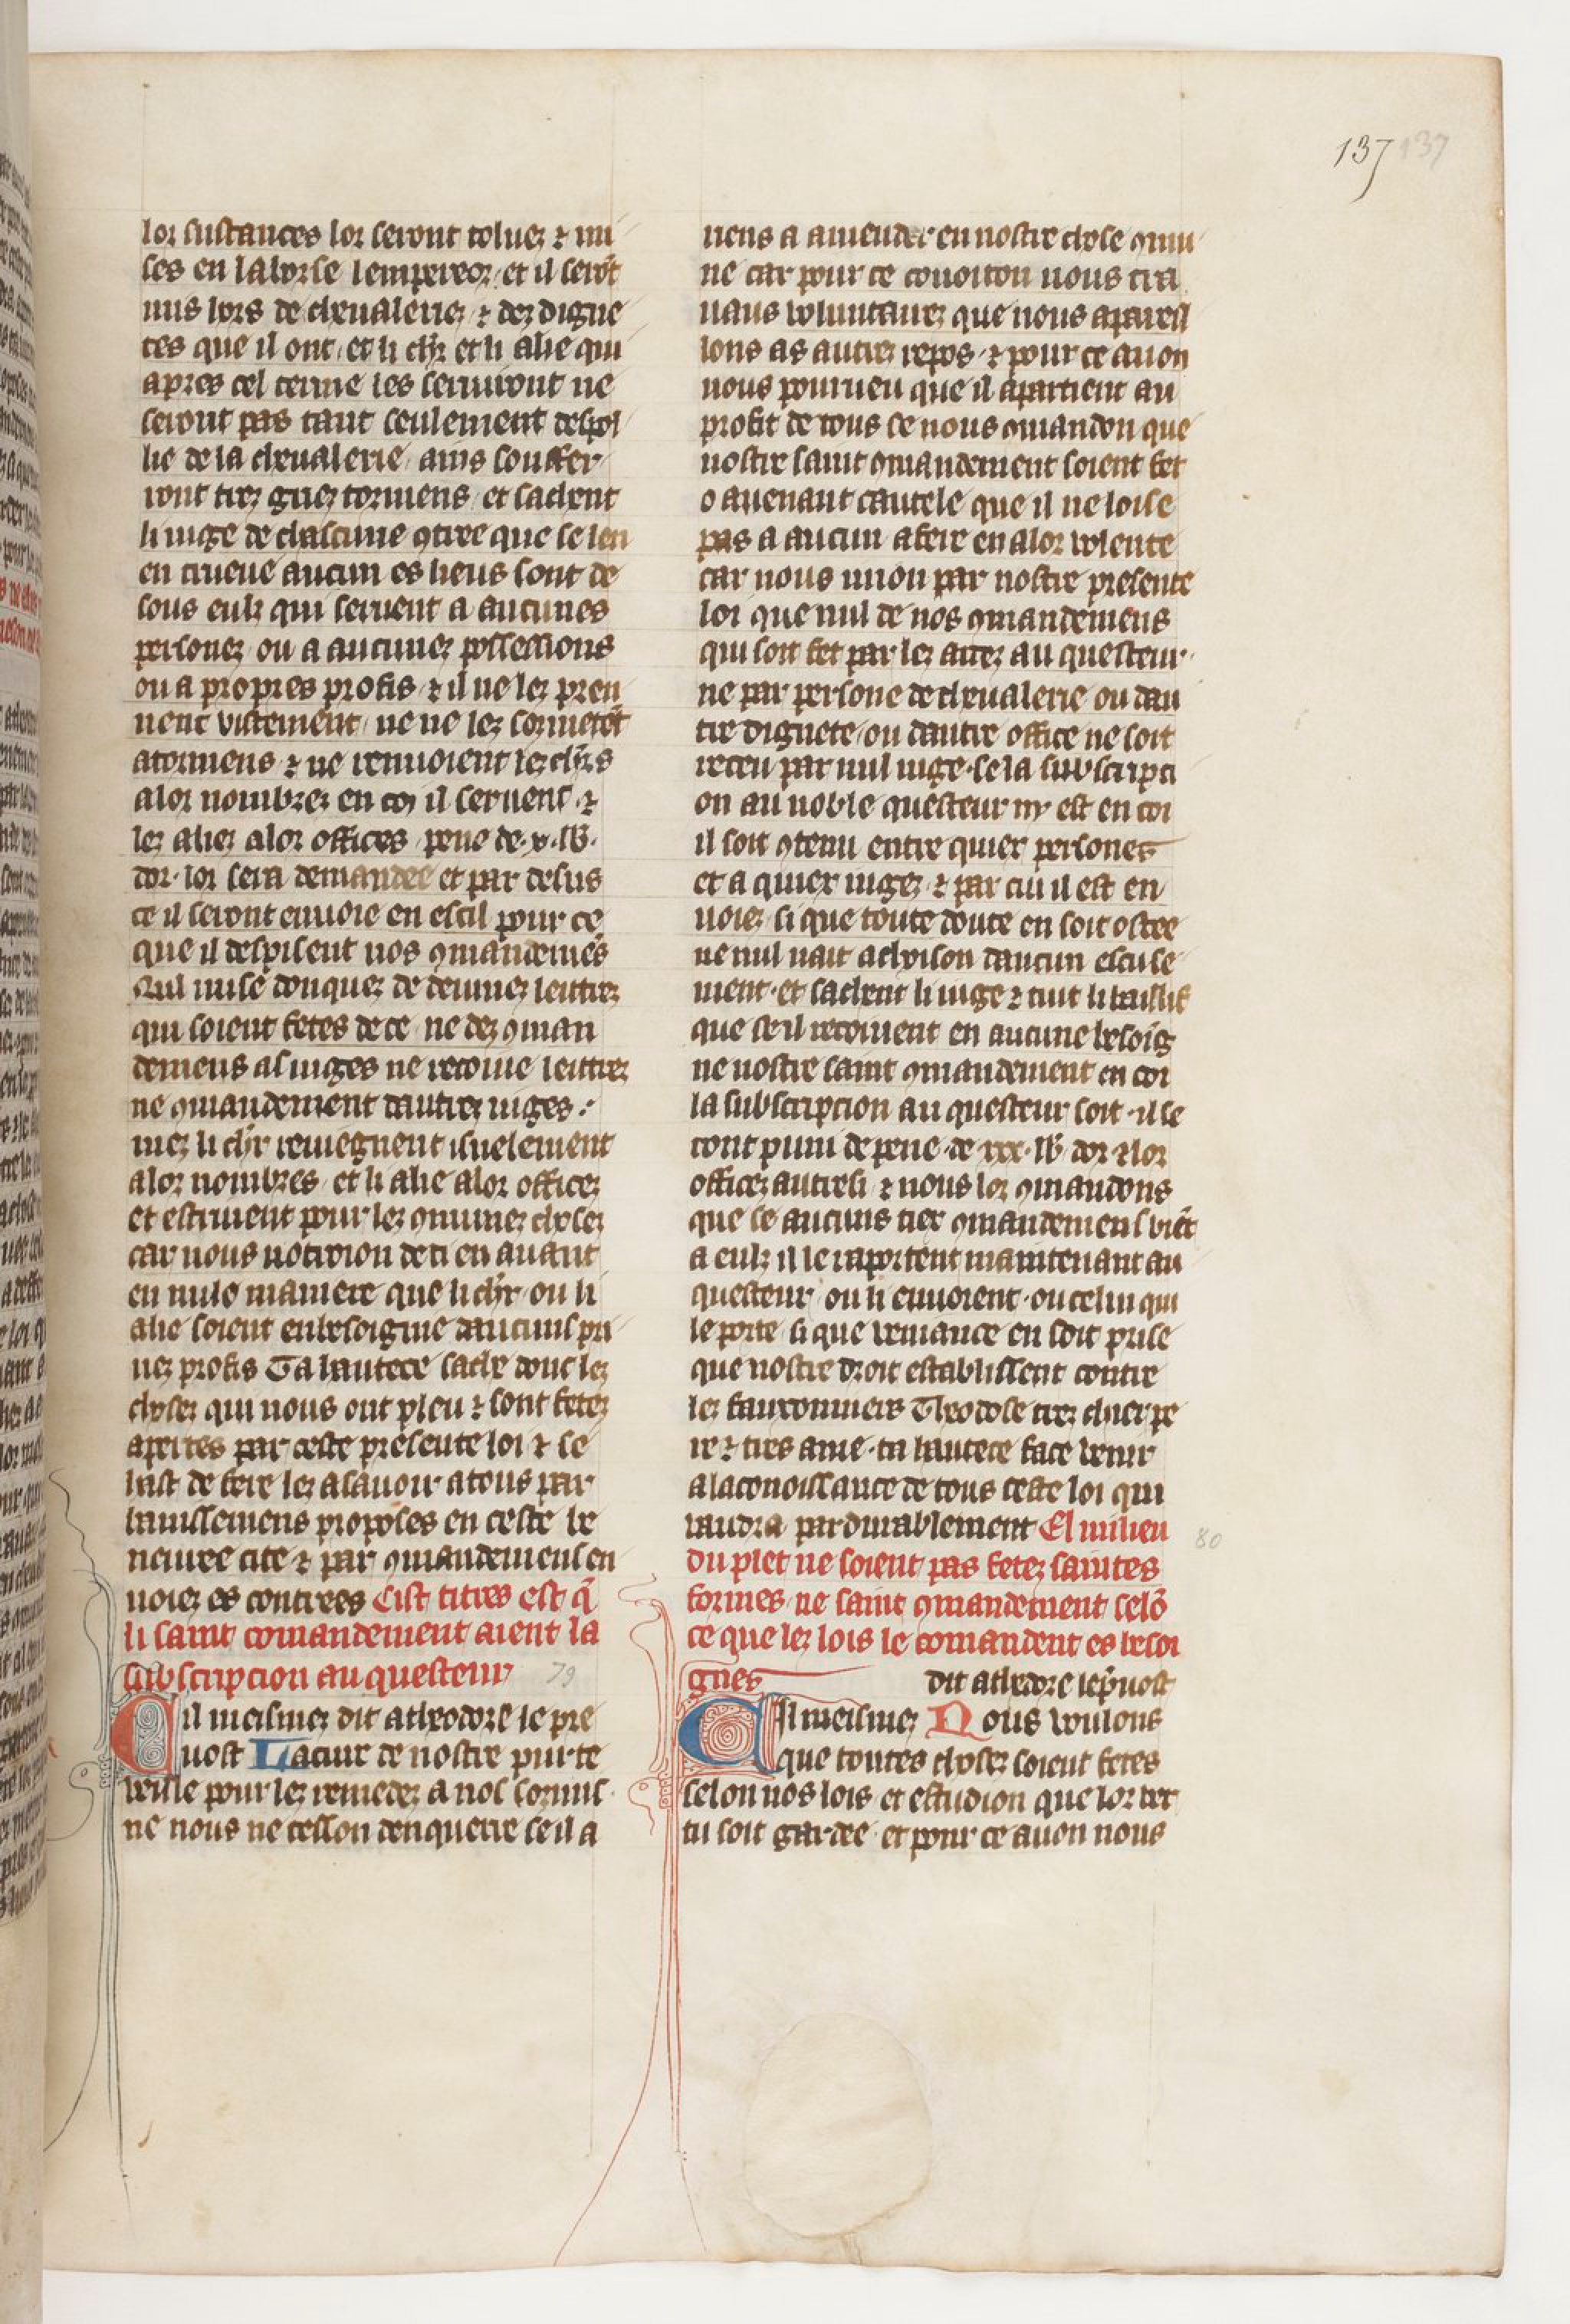 137 137
lor sustances lor seront tolues ⁊ mi
ses en la borse lempereor et il serõt
mis hors de cheualerie ⁊ dez digne
tes que il ont et li chr̃ et li alie qui
apres cel terme les seruiront ne
seront pas tant seulement despoi
lie de la cheualerie ains souffer
ront trez griez tormens et sachent
li iuge de chascune ꝯtree que se len
en trueue aucun es lieus sont de
sous eulz qui seruent a aucunes
personez ou a aucunez possessions
ou a propres profis ⁊ il ne lez pren
nent vistement ne ne lez sormetẽt
a tormens ⁊ ne renuoient lez chr̃s
a lor nombrez en coi il seruent ⁊
lez aliez a lor offices peine de .x. lb.
dor lor sera demandee et par desus
ce il seront enuoie en escil pour ce
que il despisent nos ꝯmandemẽs
Nul nuse donquez de deuinez lettrez
qui soient fetes de ce ne dez ꝯman
demens as iuges ne recoiue lettrez
ne ꝯmandement dautrez iuges
mez li chr̃ reuiegnent isnelement
a lor nombres et li alie a lor officez
et estriuent pour lez ꝯmunez chosez
car nous notroion de ci en auant
en nule maniere que li chr̃ ou li
alie soient enbesoigne daucuns pri
uez profis Ta hautece sache donc lez
chosez qui nous ont pleu ⁊ sont fetez
apertes par ceste presente loi ⁊ se
hast de fere lez asauoir a tous par
banissemens proposes en ceste be
neuree cite ⁊ par ꝯmandemens en
uoiez es contrees Cist titres est q̃
li saint comandement aient la
subscripcion au questeur 79
Cil meismez dit a theodore le pre
uost La cure de nostre purte
veille pour lez remedez a nos sormis
ne nous ne cesson denquerre se il a
riens a amender en nostre chose ꝯmu
ne car pour ce couoiton nous tra
uaus voluntairez que nous apareil
lons as autrez repos ⁊ pour ce auon
nous pourueu que il apartient au
profit de tous se nous ꝯmandon que
nostre saint ꝯmandement soient fet
o auenant cautele que il ne loise
pas a aucun a fere en a lor volente
car nous uuon par nostre presente
loi que nul de nos ꝯmandemens
qui soit fet par lez autez au questeur
ne par persone de cheualerie ou dau
tre dignete ou dautre office ne soit
receu par nul iuge se la subscripci
on au noble questeur ny est en coi
il soit ꝯtenu entre quiex persones
et a quiex iugez ⁊ par cui il est en
uoiez si que toute doute en soit ostee
ne nul nait achoison daucun escuse
ment et sachent li iuge ⁊ tuit li baillif
que se il recoiuent en aucune besoig
ne nostre saint ꝯmandement en coi
la subscripcion au questeur soit il se
ront puni de peine de xxx lb dor ⁊ lor
officez autresi ⁊ nous lor ꝯmandons
que se aucuns tiex ꝯmandemens viẽt
a eulz il le raportent maintenant au
questeur ou li enuoient ou celui qui
le porte si que veniance en soit prise
que nostre droit establissent contre
lez fauxonniers Theodose trez chier pe
re ⁊ tres ame ta hautece face venir
a la conoissance de tous ceste loi qui
vaudra pardurablement El milieu 80
du plet ne soient pas fetez saintes
formes ne saint ꝯmandement selõ
ce que lez lois le comandent es besoi
gnes dit a theodore le p̃uost
Cil meismez Nous voulons
que toutes chosez soient fetes
selon nos lois et estudion que lor ver
tu soit gardee et pour ce auon nous